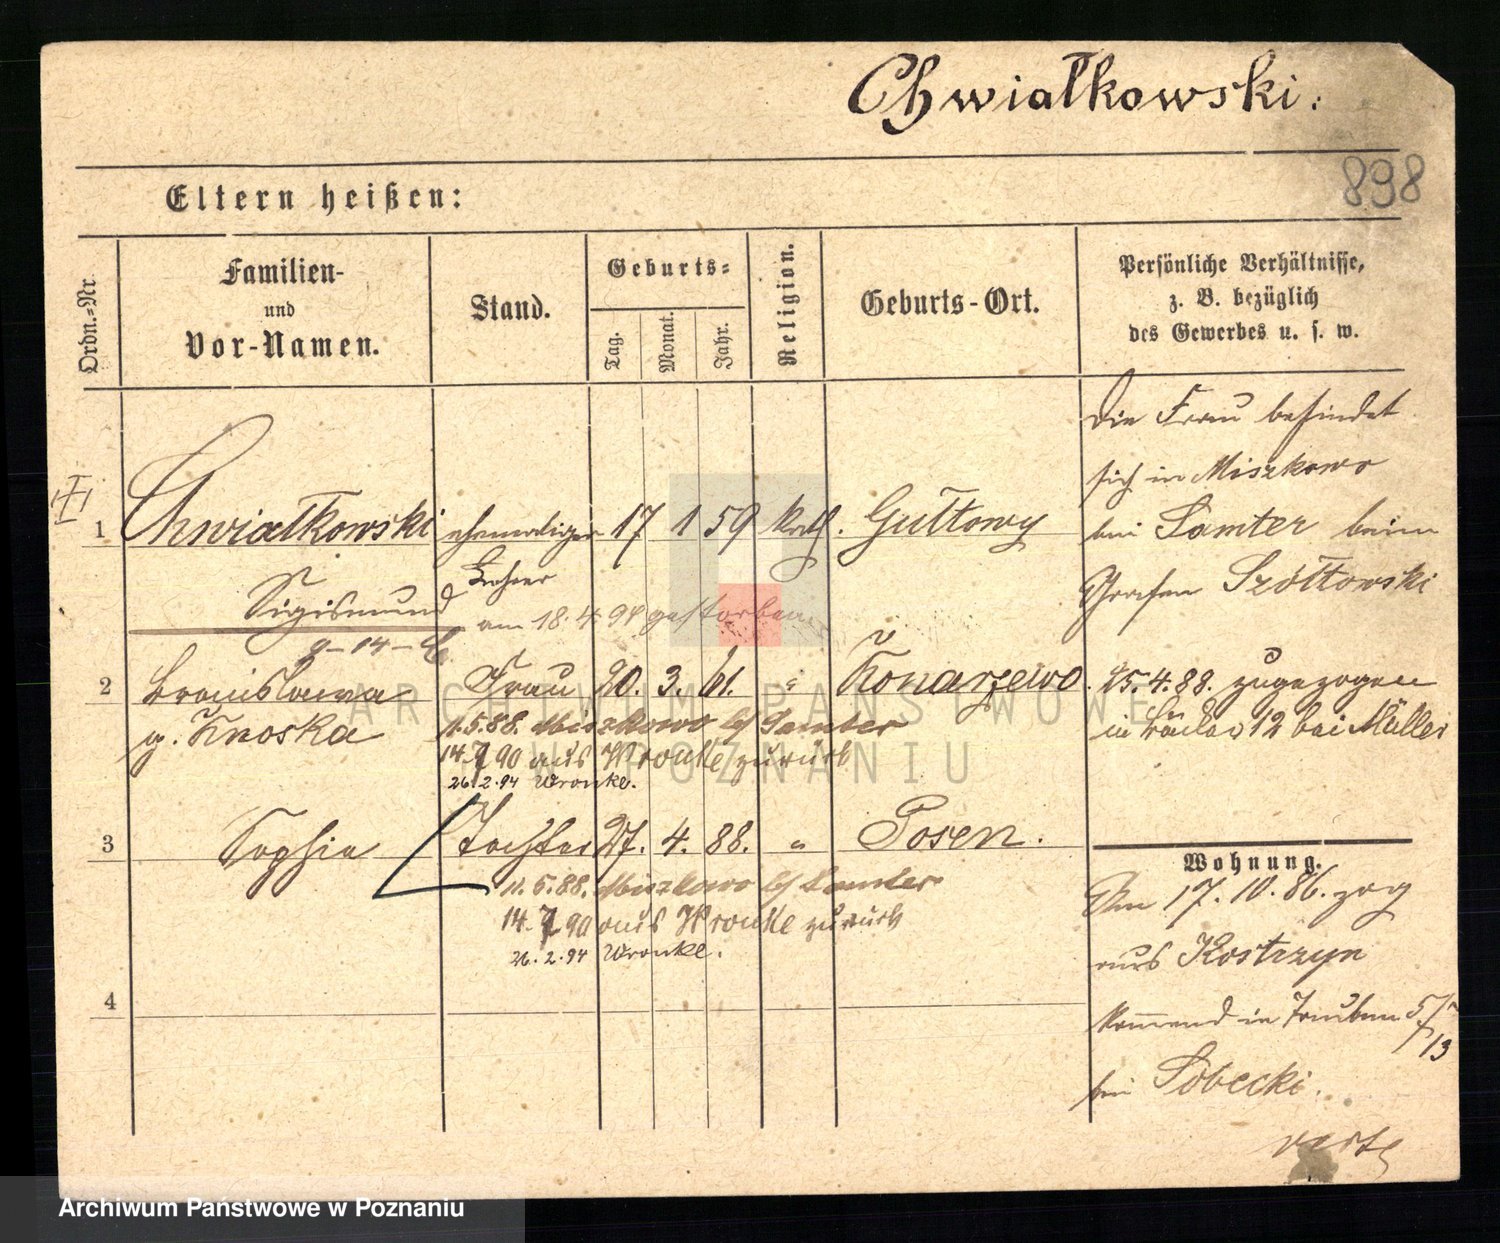 Chwiałkowski.
898
Eltern heißen:
Ordn.-Nr.
Familien-
und
Vor-Namen.
Stand.
Geburts-
Tag.
Monat.
Jahr.
Religion.
Geburts-Ort.
Persönliche Verhältnisse,
z. B. bezüglich
des Gewerbes u. s. w.
Die Frau befindet
sich in Miszkowo
bei Samter beim
Grafen Szółtowski
1 Chwiałkowski ehemaliger 17 1 59 kath. Gułtowy
Sigismund
am 18.4.94 gestorben
2 Bronislawa Frau 20. 3. 61. " Konarzewo.
g. Knoska
1.5.88. Miszkowo b/ Samter
14.7.90 aus Wronke zurück
26.2.94 Wronke.
25.4.88. zugezogen
in 12 bei Müller
3 Sophie Tochter 27. 4. 88. " Posen.
11.5.88. Miszkowo b/ Samter
14.7.90 aus Wronke zurück
26.2.94 Wronke.
4
Wohnung.
Am 17.10.86. zog
aus Kostrzyn
kommend in Tauben 5/
13
bei Sobecki.
verte
ARCHIWUM PAŃSTWOWE
W POZNANIU
Archiwum Państwowe w Poznaniu